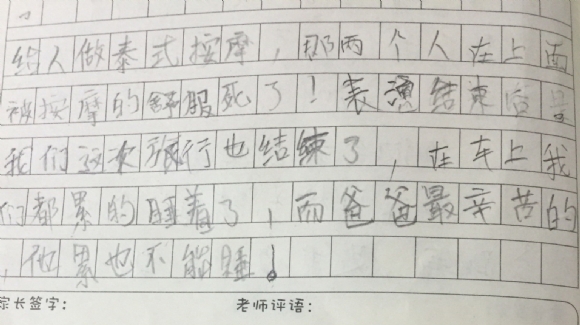 。
给人做泰式按摩,那两个人在上面
被按摩的舒服死了!表演结束后
我们这次旅行也结练了,在车上我
们都累的睡着了,而爸爸最辛苦的
,他累也不能睡!
家长签字: 老师评语: